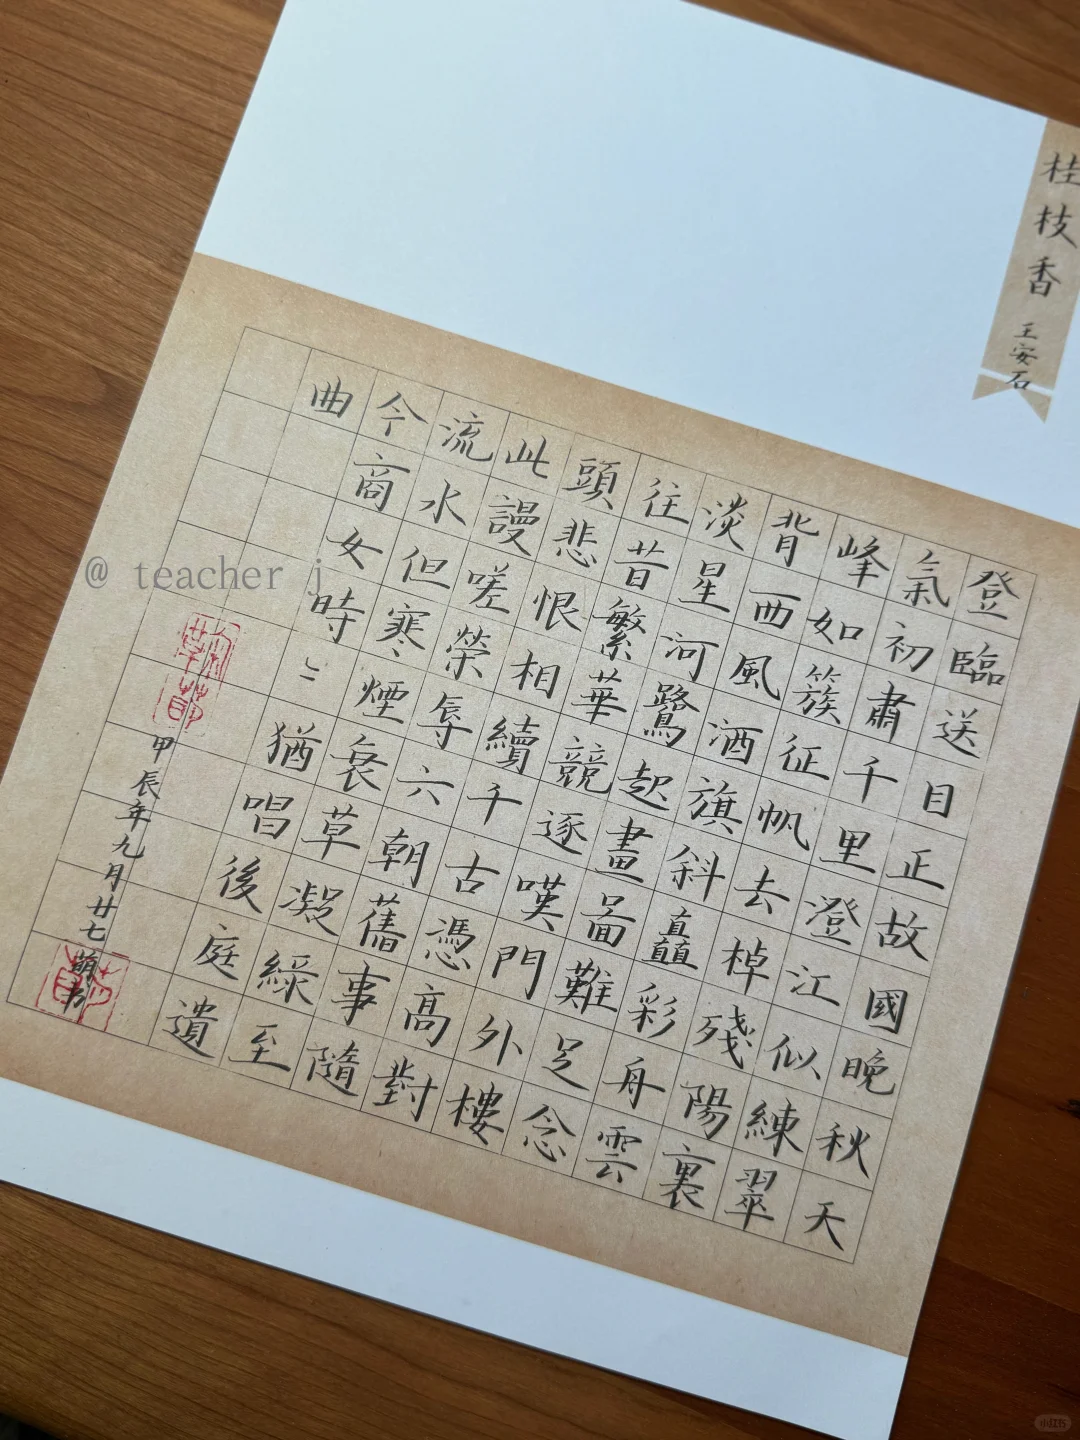 桂枝香
王安石
登臨送目正故國晚秋天
氣初肅千里澄江似練翠
峰如簇征帆去棹殘陽裏
背西風酒旗斜矗彩舟雲
淡星河鷺起畫啚難足念
往昔繁華競逐嘆門外樓
頭悲恨相續千古憑高對
此謾嗟榮辱六朝舊事隨
流水但寒煙衰草凝綠至
今商女時〻猶唱後庭遺
曲
甲辰年九月廿七
@ teacher j
小红书